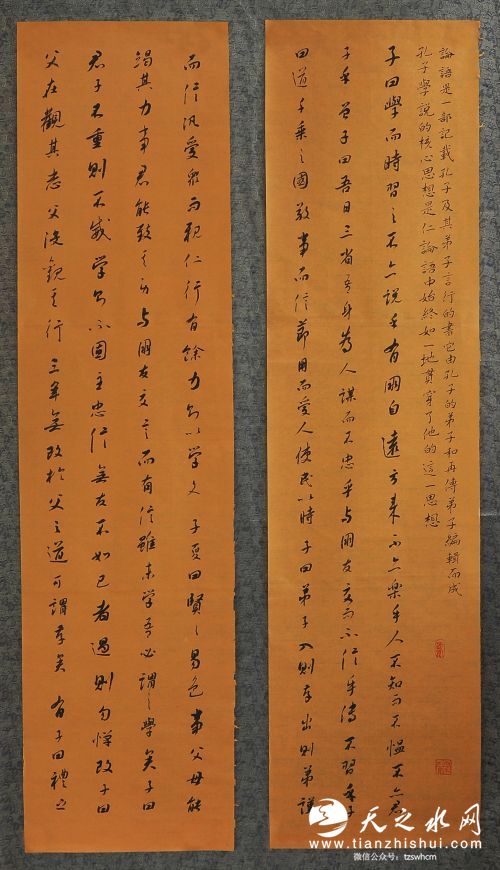 論語是一部記載孔子及其弟子言行的書它由孔子的弟子和再傳弟子編輯而成
孔子學說的核心思想是仁論語中始終如一地貫穿了他的這一思想
子曰學而時習之不亦說乎有朋自遠方來不亦樂乎人不知而不慍不亦君
子乎 曾子曰吾日三省吾身為人謀而不忠乎與朋友交而不信乎傳不習乎子
曰道千乘之國敬事而信節用而愛人使民以時 子曰弟子入則孝出則弟謹
而信汎愛眾而親仁行有餘力則以學文 子夏曰賢〻易色事父母能
竭其力事君能致其身與朋友交言而有信雖未學吾必謂之學矣子曰
君子不重則不威学則不固主忠信無友不如己者過則勿憚改子曰
父在觀其志父沒觀其行三年無改於父之道可謂孝矣 有子曰禮之
天之水网
www.tianzhishui.com
微信公众号：tzswhcm